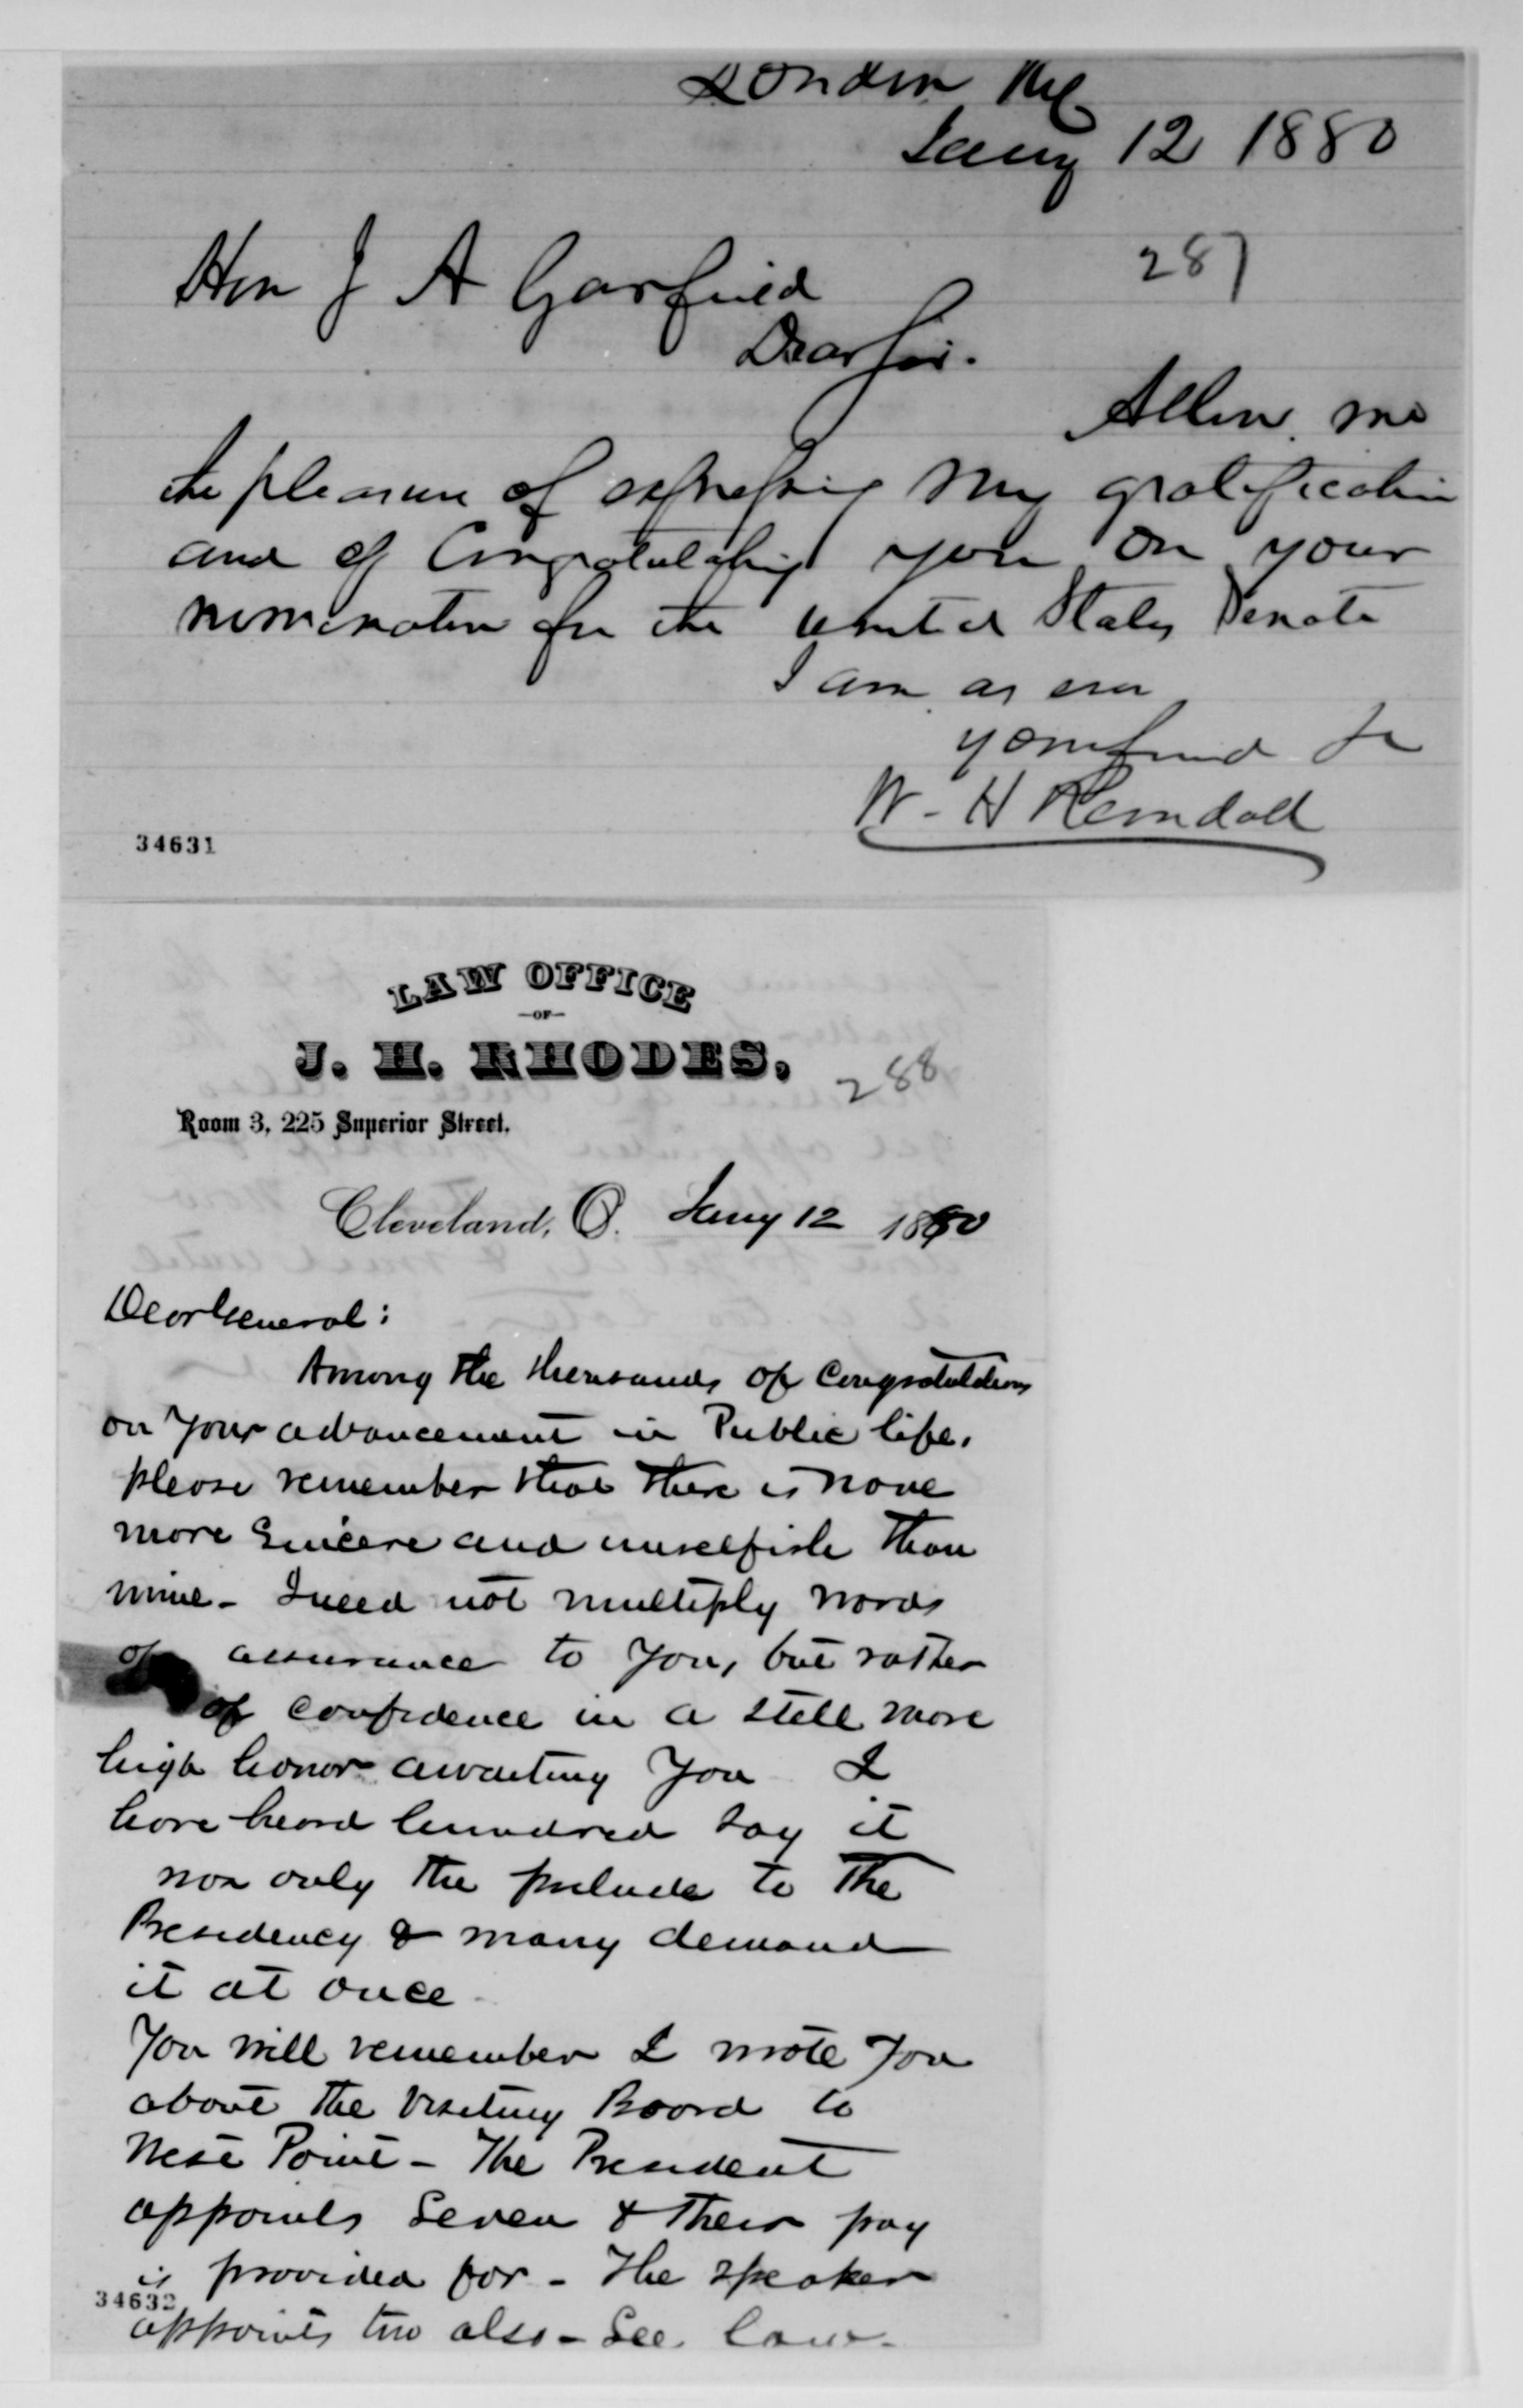 London Ky
Jany 12 1880
287
Hon J A Garfield
Dear Sir.
Allow me
the pleasure of expressing my gratification
and of Congratulating you on your
nomination for the United States Senate
I am as ever
your friend &c
W. H Randall
34631
LAW OFFICE
—OF—
J. H. RHODES,
288
Room 3, 225 Superior Street.
Cleveland, O. Jany 12 1880
Dear General:
Among the thousands of Congratulations
on your advancement in Public life,
please remember that there is none
more Sincere and unselfish than
mine - I need not multiply words
of assurance to you, but rather
of confidence in a still more
high honor awaiting you I
have heard hundred say it
was only the prelude to the
Presidency & many demand
it at once -
You will remember I wrote you
about the Visiting Board to
West Point - The President
appoints Seven & their pay
is provided for - The speaker
34632
appoints two also - See law -